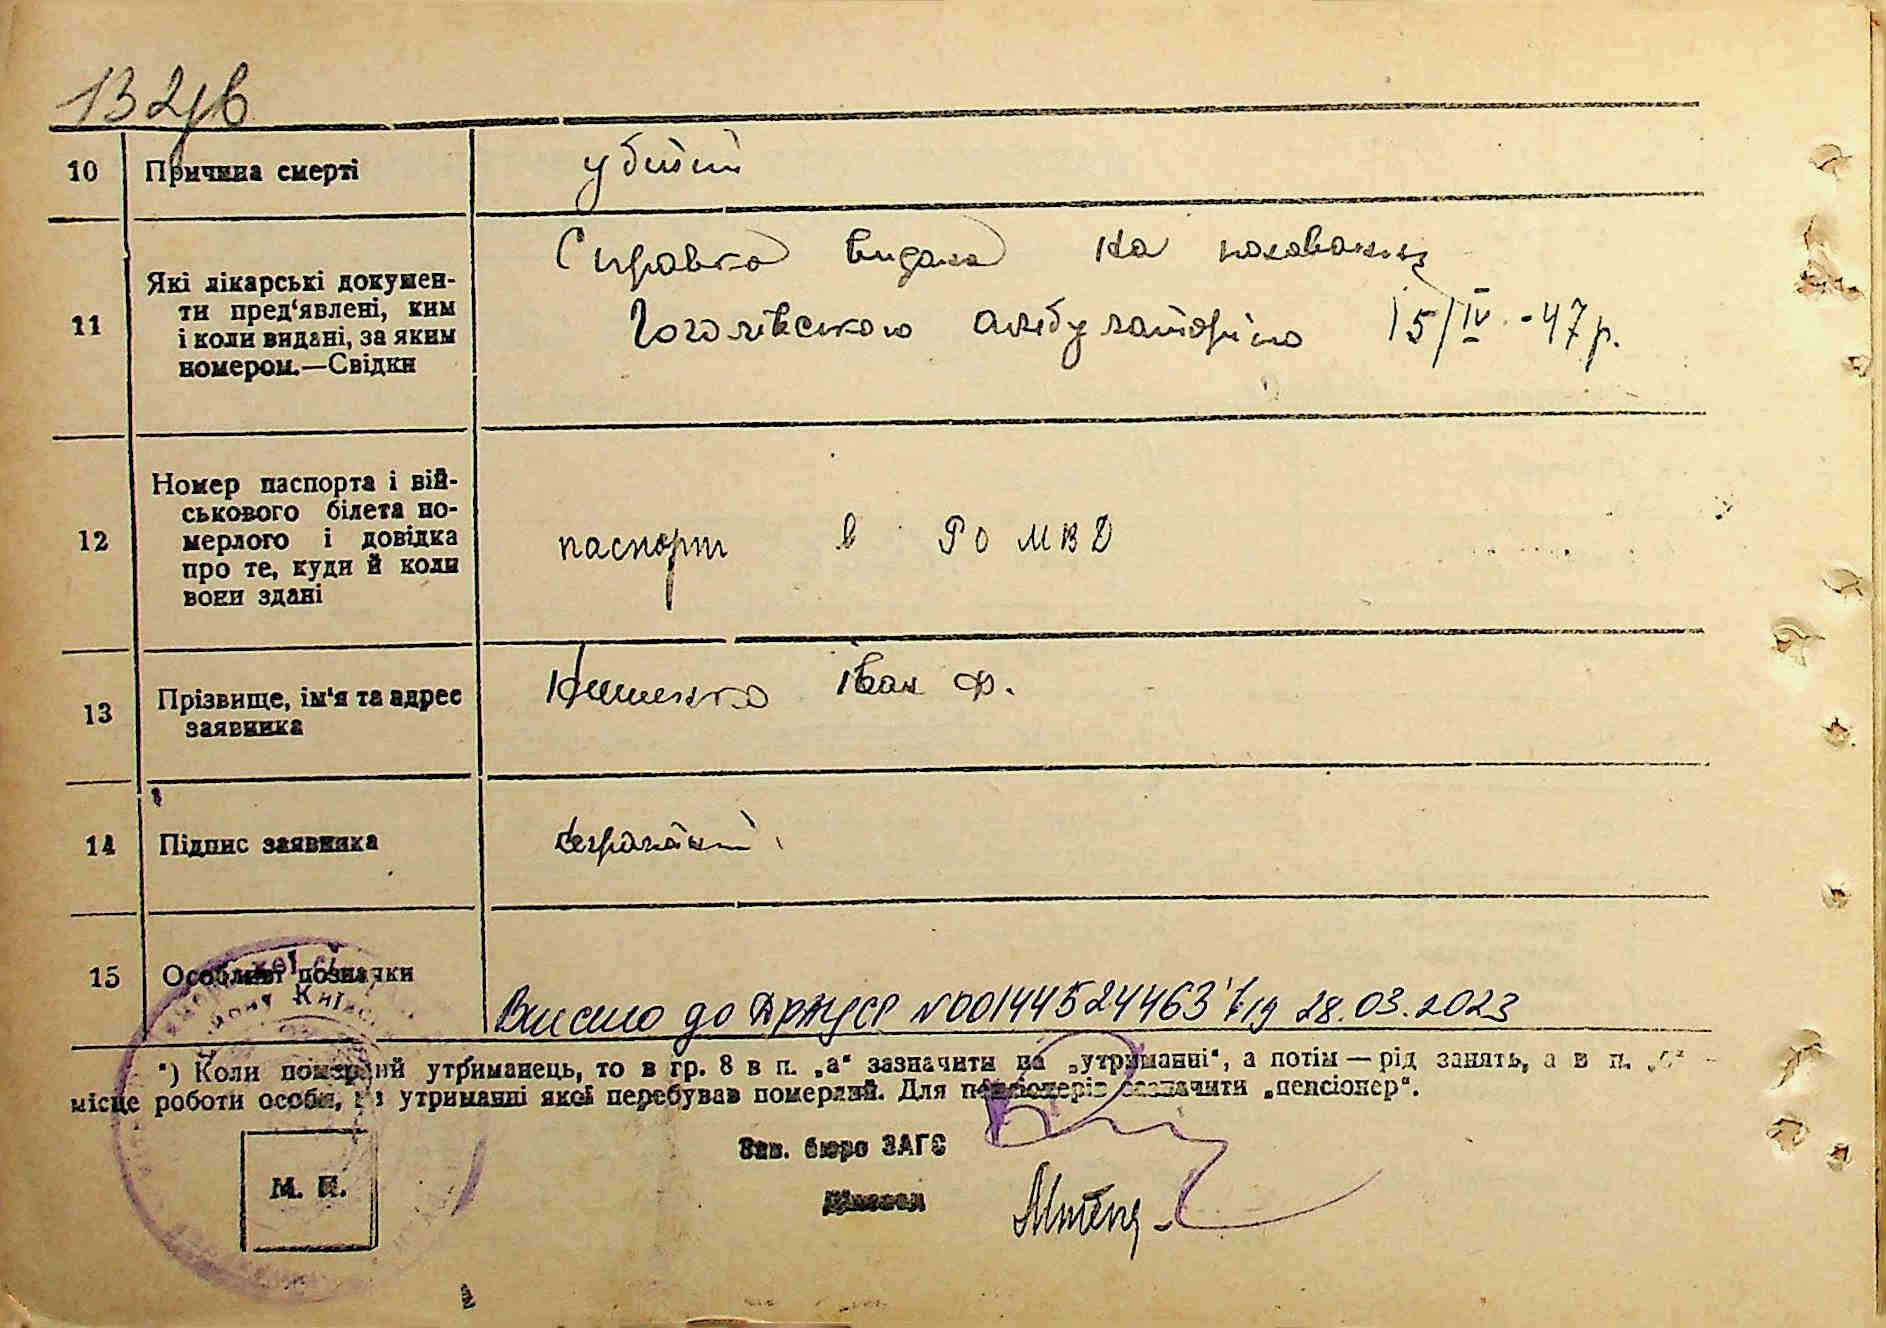 132зв
10 Причина смерті убитий
11 Які лікарські докумен-
ти пред‘явлені, ким
і коли видані, за яким
номером.—Свідки
Справка видана на поховання
Гоголівською амбулаторією 15/IV-47р.
12 Номер паспорта і вій-
ськового білета по-
мерлого і довідка
про те, куди й коли
вони здані
паспорт в РО МВД
13 Прізвище, ім‘я та адрес
заявника
Іван Ф.
14 Підпис заявника
15 Особливі позначки
Внесено до ДРАЦСГ №00144524463 від 28.03.2023
*) Коли померлий утриманець, то в гр. 8 в п. „а“ зазначити на „утриманні“, а потім — рід занять, а в п. „б“ —
місце роботи особи, на утриманні якої перебував померлий. Для пенсіонерів зазначити „пенсіонер“.
М. П.
Зав. бюро ЗАГС
Діловод